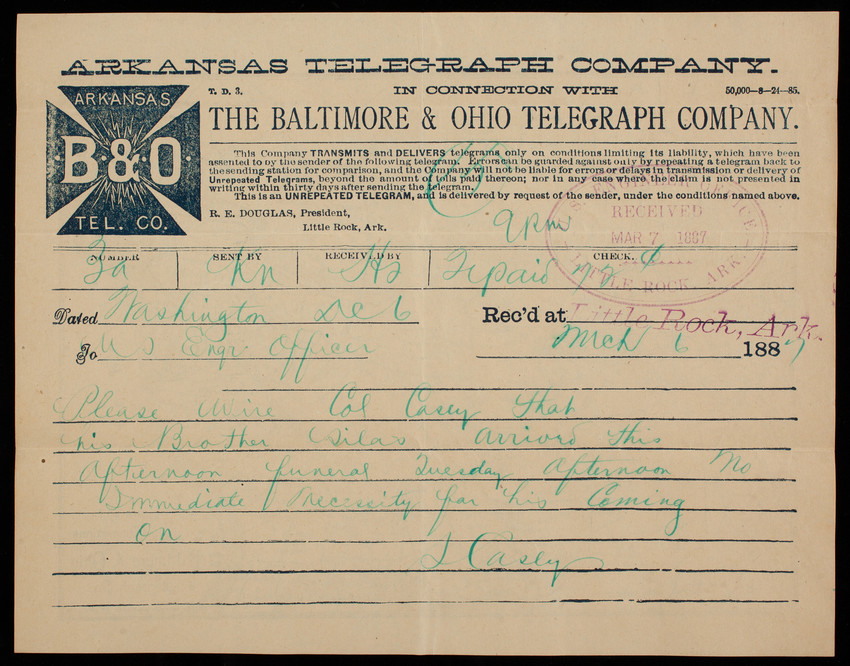 ARKANSAS TELEGRAPH COMPANY.
T. D. 3. IN CONNECTION WITH 50,000—8—21—85.
THE BALTIMORE & OHIO TELEGRAPH COMPANY.
ARKANSAS
B·&·O
TEL. CO.
This Company TRANSMITS and DELIVERS telegrams only on conditions limiting its liability, which have been
assented to by the sender of the following telegram. Errors can be guarded against only by repeating a telegram back to
the sending station for comparison, and the Company will not be liable for errors or delays in transmission or delivery of
Unrepeated Telegrams, beyond the amount of tolls paid thereon; nor in any case where the claim is not presented in
writing within thirty days after sending the telegram.
This is an UNREPEATED TELEGRAM, and is delivered by request of the sender, under the conditions named above.
R. E. DOUGLAS, President,
Little Rock, Ark.
ENGINEER OFFICE
RECEIVED
MAR 7 1887
LITTLE ROCK, ARK.
NUMBER SENT BY RECEIVED BY CHECK.
Kn
paid
Dated Washington DC 6 Rec'd at Little Rock, Ark.
Mch 6 1887
To US Engr Officer
Please Wire Col Casey that
his Brother Silas arrived this
Afternoon funeral Tuesday Afternoon No
Immediate Necessity for his Coming
on
Casey